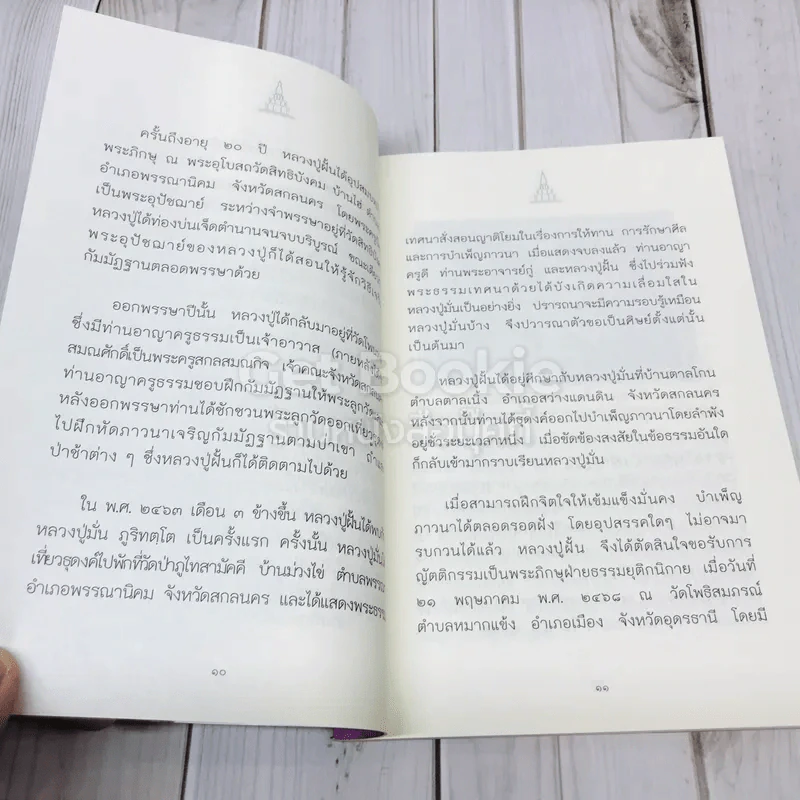 ครั้นถึงอายุ ๒๐ ปี หลวงปู่ฝั้นได้อุปสมบท
พระภิกษุ ณ พระอุโบสถวัดสิทธิบังคม บ้านไฮ่
อำเภอพรรณานิคม จังหวัดสกลนคร โดยพระครู
เป็นพระอุปัชฌาย์ ระหว่างจำพรรษาอยู่ที่วัดสิทธิบังคม
หลวงปู่ได้ท่องบ่นเจ็ดตำนานจนจบบริบูรณ์ ขณะเดียว
พระอุปัชฌาย์ของหลวงปู่ก็ได้สอนให้รู้จักวิธี
กัมมัฏฐานตลอดพรรษาด้วย
ออกพรรษาปีนั้น หลวงปู่ได้กลับมาอยู่ที่วัด
ซึ่งมีท่านอาญาครูธรรมเป็นเจ้าอาวาส (ภายหลัง
สมณศักดิ์เป็นพระครูสกลสมณกิจ เจ้าคณะจังหวัดสกล
ท่านอาญาครูธรรมชอบฝึกกัมมัฏฐานให้พระลูกวัด
หลังออกพรรษาท่านได้ชักชวนพระลูกวัดออกเที่ยว
ไปฝึกหัดภาวนาเจริญกัมมัฏฐานตามป่าเขา ถ้ำ
ป่าช้าต่าง ๆ ซึ่งหลวงปู่ฝั้นก็ได้ติดตามไปด้วย
ใน พ.ศ. ๒๔๖๓ เดือน ๓ ข้างขึ้น หลวงปู่ฝั้นได้พบ
หลวงปู่มั่น ภูริทตฺโต เป็นครั้งแรก ครั้งนั้น หลวงปู่มั่น
เที่ยวธุดงค์ไปพักที่วัดป่าภูไทสามัคคี บ้านม่วงไข่ ตำบลพรรณา
อำเภอพรรณานิคม จังหวัดสกลนคร และได้แสดงพระธรรม
๑๐
เทศนาสั่งสอนญาติโยมในเรื่องการให้ทาน การรักษาศีล
และการบำเพ็ญภาวนา เมื่อแสดงจบลงแล้ว ท่านอาญา
ครูดี ท่านพระอาจารย์กู่ และหลวงปู่ฝั้น ซึ่งไปร่วมฟัง
พระธรรมเทศนาด้วยได้บังเกิดความเลื่อมใสใน
หลวงปู่มั่นเป็นอย่างยิ่ง ปรารถนาจะมีความรอบรู้เหมือน
หลวงปู่มั่นบ้าง จึงปวารณาตัวขอเป็นศิษย์ตั้งแต่นั้น
เป็นต้นมา
หลวงปู่ฝั้นได้อยู่ศึกษากับหลวงปู่มั่นที่บ้านตาลโกน
ตำบลตาลเนิ้ง อำเภอสว่างแดนดิน จังหวัดสกลนคร
หลังจากนั้นท่านได้ธุดงค์ออกไปบำเพ็ญภาวนาโดยลำพัง
อยู่ชั่วระยะเวลาหนึ่ง เมื่อขัดข้องสงสัยในข้อธรรมอันใด
ก็กลับเข้ามากราบเรียนหลวงปู่มั่น
เมื่อสามารถฝึกจิตใจให้เข้มแข็งมั่นคง บำเพ็ญ
ภาวนาได้ตลอดรอดฝั่ง โดยอุปสรรคใดๆ ไม่อาจมา
รบกวนได้แล้ว หลวงปู่ฝั้น จึงได้ตัดสินใจขอรับการ
ญัตติกรรมเป็นพระภิกษุฝ่ายธรรมยุติกนิกาย เมื่อวันที่
๒๑ พฤษภาคม พ.ศ. ๒๔๖๘ ณ วัดโพธิสมภรณ์
ตำบลหมากแข้ง อำเภอเมือง จังหวัดอุดรธานี โดยมี
๑๑
Get Bookie